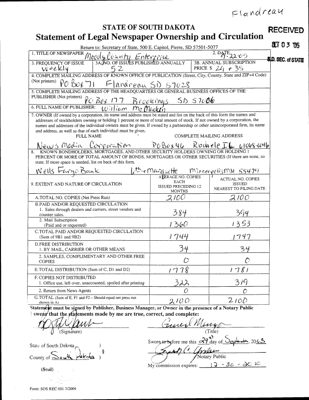 Flandreau
RECEIVED
OCT 03 '05
S.D. SEC. of STATE
STATE OF SOUTH DAKOTA
Statement of Legal Newspaper Ownership and Circulation
Return to: Secretary of State, 500 E. Capitol, Pierre, SD 57501-5077
1. TITLE OF NEWSPAPER Moody County Enterprise
2. DATE
3. FREQUENCY OF ISSUE Weekly
3A. NO. OF ISSUES PUBLISHED ANNUALLY 52
3B. ANNUAL SUBSCRIPTION PRICE $
4. COMPLETE MAILING ADDRESS OF KNOWN OFFICE OF PUBLICATION (Street, City, County, State and ZIP+4 Code) (Not printers)
PO Box 71 Flandreau SD 57028
5. COMPLETE MAILING ADDRESS OF THE HEADQUARTERS OR GENERAL BUSINESS OFFICES OF THE PUBLISHER (Not printers)
PO Box 177 Brookings SD 57006
6. FULL NAME OF PUBLISHER: William McMacken
7. OWNER (If owned by a corporation, its name and address must be stated and list on the back of this form the names and
addresses of stockholders owning or holding 1 percent or more of total amount of stock. If not owned by a corporation, the
names and addresses of the individual owners must be given. If owned by a partnership or other unincorporated firm, its name
and address, as well as that of each individual must be given.
FULL NAME COMPLETE MAILING ADDRESS
News Media Corporation PO Box 46 Rochelle IL
8. KNOWN BONDHOLDERS, MORTGAGES, AND OTHER SECURITY HOLDERS OWNING OR HOLDING 1
PERCENT OR MORE OF TOTAL AMOUNT OF BONDS, MORTGAGES OR OTHER SECURITIES (If there are none, so
state. If more space is needed, list on back of this form.
Wells Fargo Bank Marquette Minneapolis MN
9. EXTENT AND NATURE OF CIRCULATION
AVERAGE NO. COPIES EACH ISSUED PRECEDING 12 MONTHS
ACTUAL NO. COPIES ISSUED NEAREST TO FILING DATE
A. TOTAL NO. COPIES (Net Press Run) 2100 2100
B. PAID AND/OR REQUESTED CIRCULATION
1. Sales through dealers and carriers, street vendors and counter sales. 384 394
2. Mail Subscription (Paid and or requested) 1360 1353
C. TOTAL PAID AND/OR REQUESTED CIRCULATION (Sum of 9B1 and 9B2) 1744 1747
D. FREE DISTRIBUTION
1. BY MAIL, CARRIER OR OTHER MEANS 34 34
2. SAMPLES, COMPLIMENTARY AND OTHER FREE COPIES 0 0
E. TOTAL DISTRIBUTION (Sum of C, D1 and D2) 1778 1781
F. COPIES NOT DISTRIBUTED
1. Office use, left over, unaccounted, spoiled after printing 322 319
2. Return from News Agents 0 0
G. TOTAL (Sum of E, F1 and F2 - Should equal net press run shown in A) 2100 2100
Statement must be signed by Publisher, Business Manager, or Owner in the presence of a Notary Public
I swear that the statements made by me are true, correct, and complete:
(Signature)
General Manager
(Title)
State of South Dakota )
County of )
Sworn to before me this day of September
Notary Public
(Seal)
My commission expires:
Form: SOS REC 051 7/2004